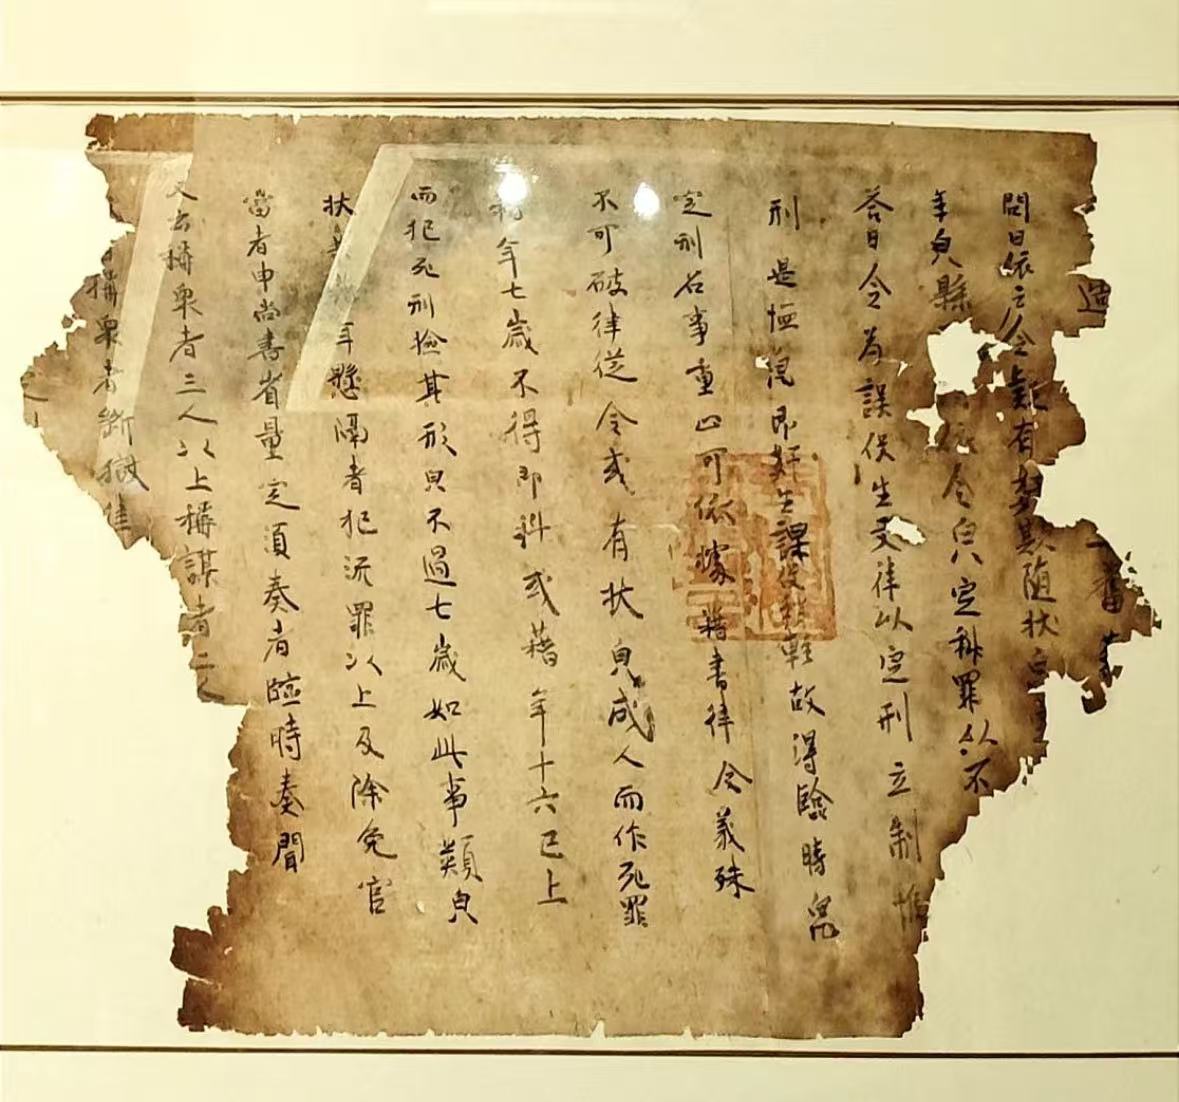 過
問曰依令疑有奸欺隨狀皃
年皃懸 依令皃定科罪以不
答曰令為課役生文律以定刑立制惟
刑是恤皃即奸生課役稍輕故得臨時皃
定刑名事重止可依據籍書律令義殊
不可破律從令或有狀皃成人而作死罪
籍年七歲不得即科或籍年十六已上
而犯死刑驗其形皃不過七歲如此事類皃
狀共籍年懸隔者犯流罪以上及除免官
當者申尚書省量定須奏者臨時奏聞
又云稱眾者三人以上稱謀者二人
稱眾者斷獄